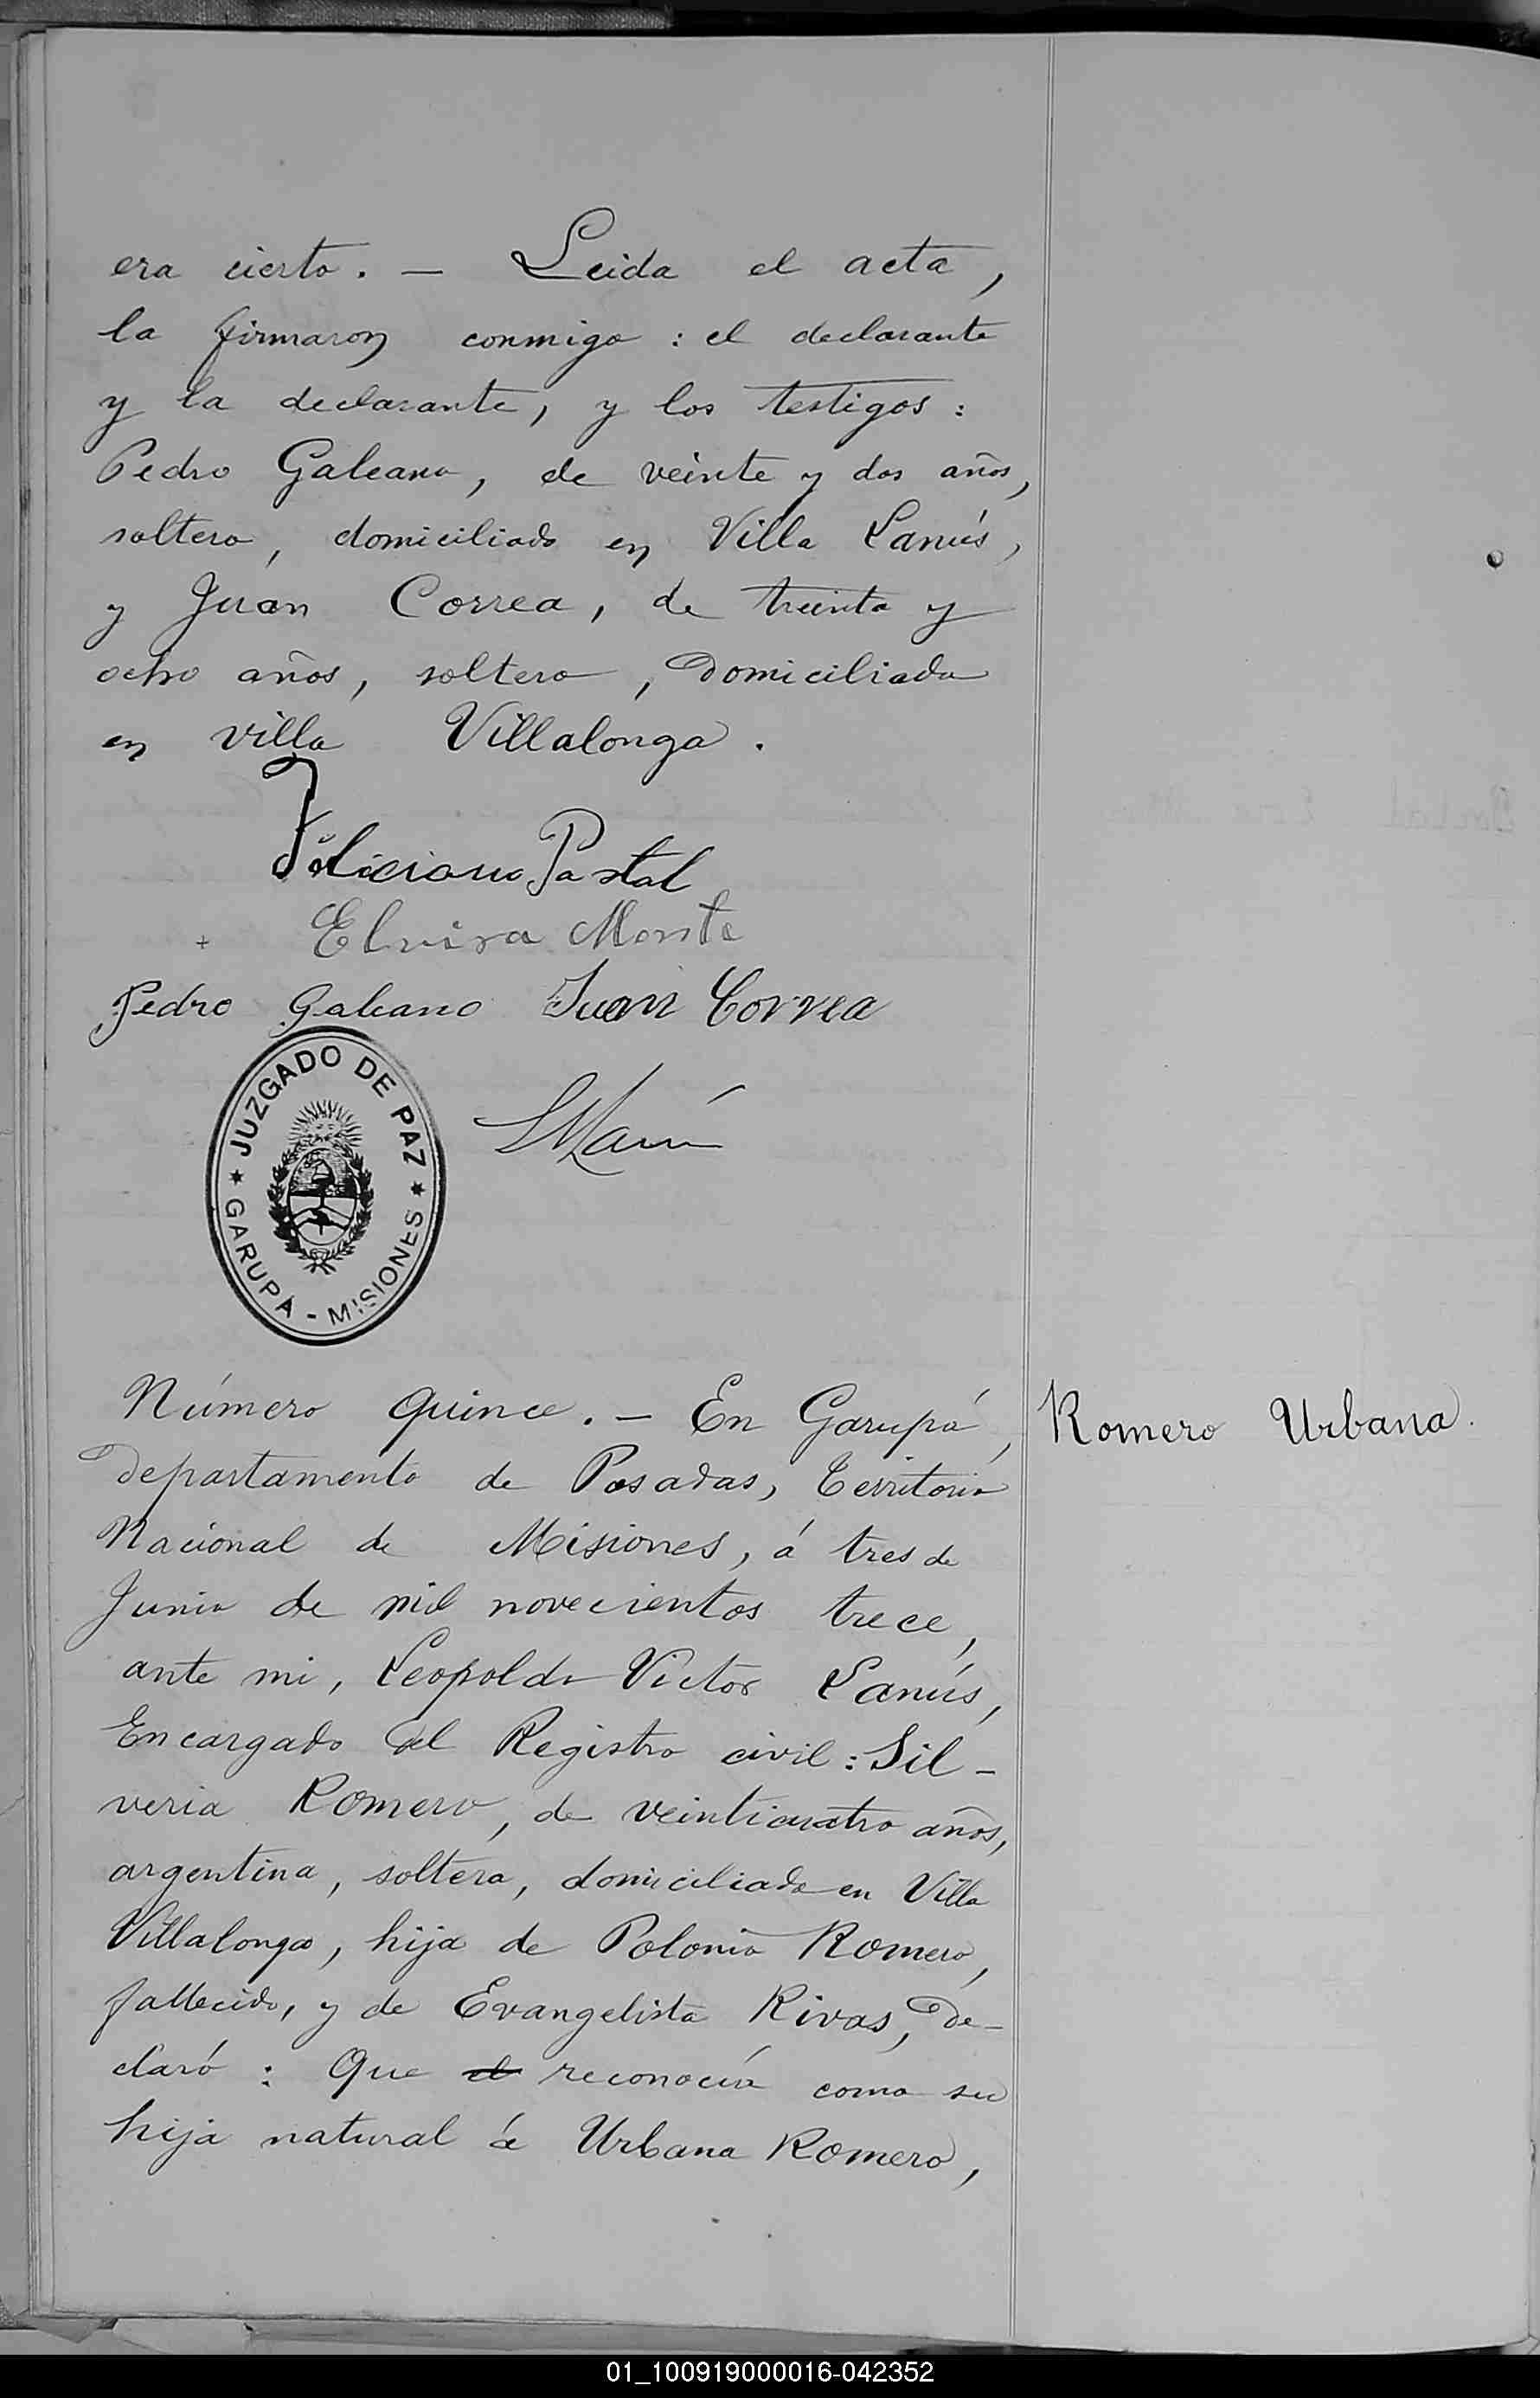 era cierto. — Leida el acta,
la firmaron conmigo: el declarante
y la declarante, y los testigos:
Pedro Galeano, de veinte y dos años,
soltero, domiciliado en Villa Lanús,
y Juan Correa, de treinta y
ocho años, soltero, domiciliado
en villa Villalonga.
Feliciano Pastal
+ Elvira Monte
Pedro Galeano Juan Correa
JUZGADO DE PAZ
GARUPÁ - MISIONES
Número quince. — En Garupá,
Romero Urbana.
departamento de Posadas, Territorio
Nacional de Misiones, á tres de
Junio de mil novecientos trece,
ante mi, Leopoldo Victor Lanús,
Encargado del Registro civil: Sil-
veria Romero, de veinticuatro años,
argentina, soltera, domiciliada en Villa
Villalonga, hija de Polonio Romero,
fallecido, y de Evangelista Rivas, de-
claró: Que el reconocía como su
hija natural á Urbana Romero,
01_100919000016-042352